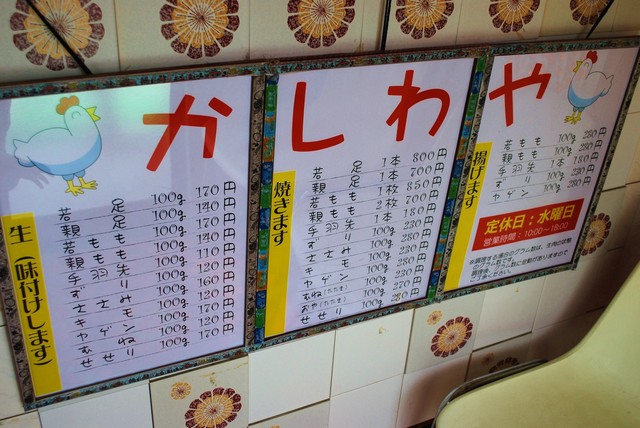 かしわや
生(味付けします)
若足 100g 170円
親足 100g 140円
若もも 100g 170円
親もも 100g 140円
手羽先 100g 110円
ずり 100g 120円
ささみ 100g 160円
キモ 100g 120円
ヤゲン 100g 170円
むね 100g 120円
せせり 100g 170円
焼きます
若足 1本 800円
親足 1本 700円
若もも 1枚 850円
親もも 1枚 700円
手羽先 1本 180円
ずり 100g 230円
ささみ 100g 280円
キモ 100g 230円
ヤゲン 100g 280円
むね(たたき) 100g 230円
おや(たたき) 100g 270円
せせり 100g 280円
揚げます
若もも 100g 280円
親もも 100g 280円
手羽先 1本 180円
ずり 100g 230円
ヤゲン 100g 280円
定休日:水曜日
営業時間:10:00~18:00